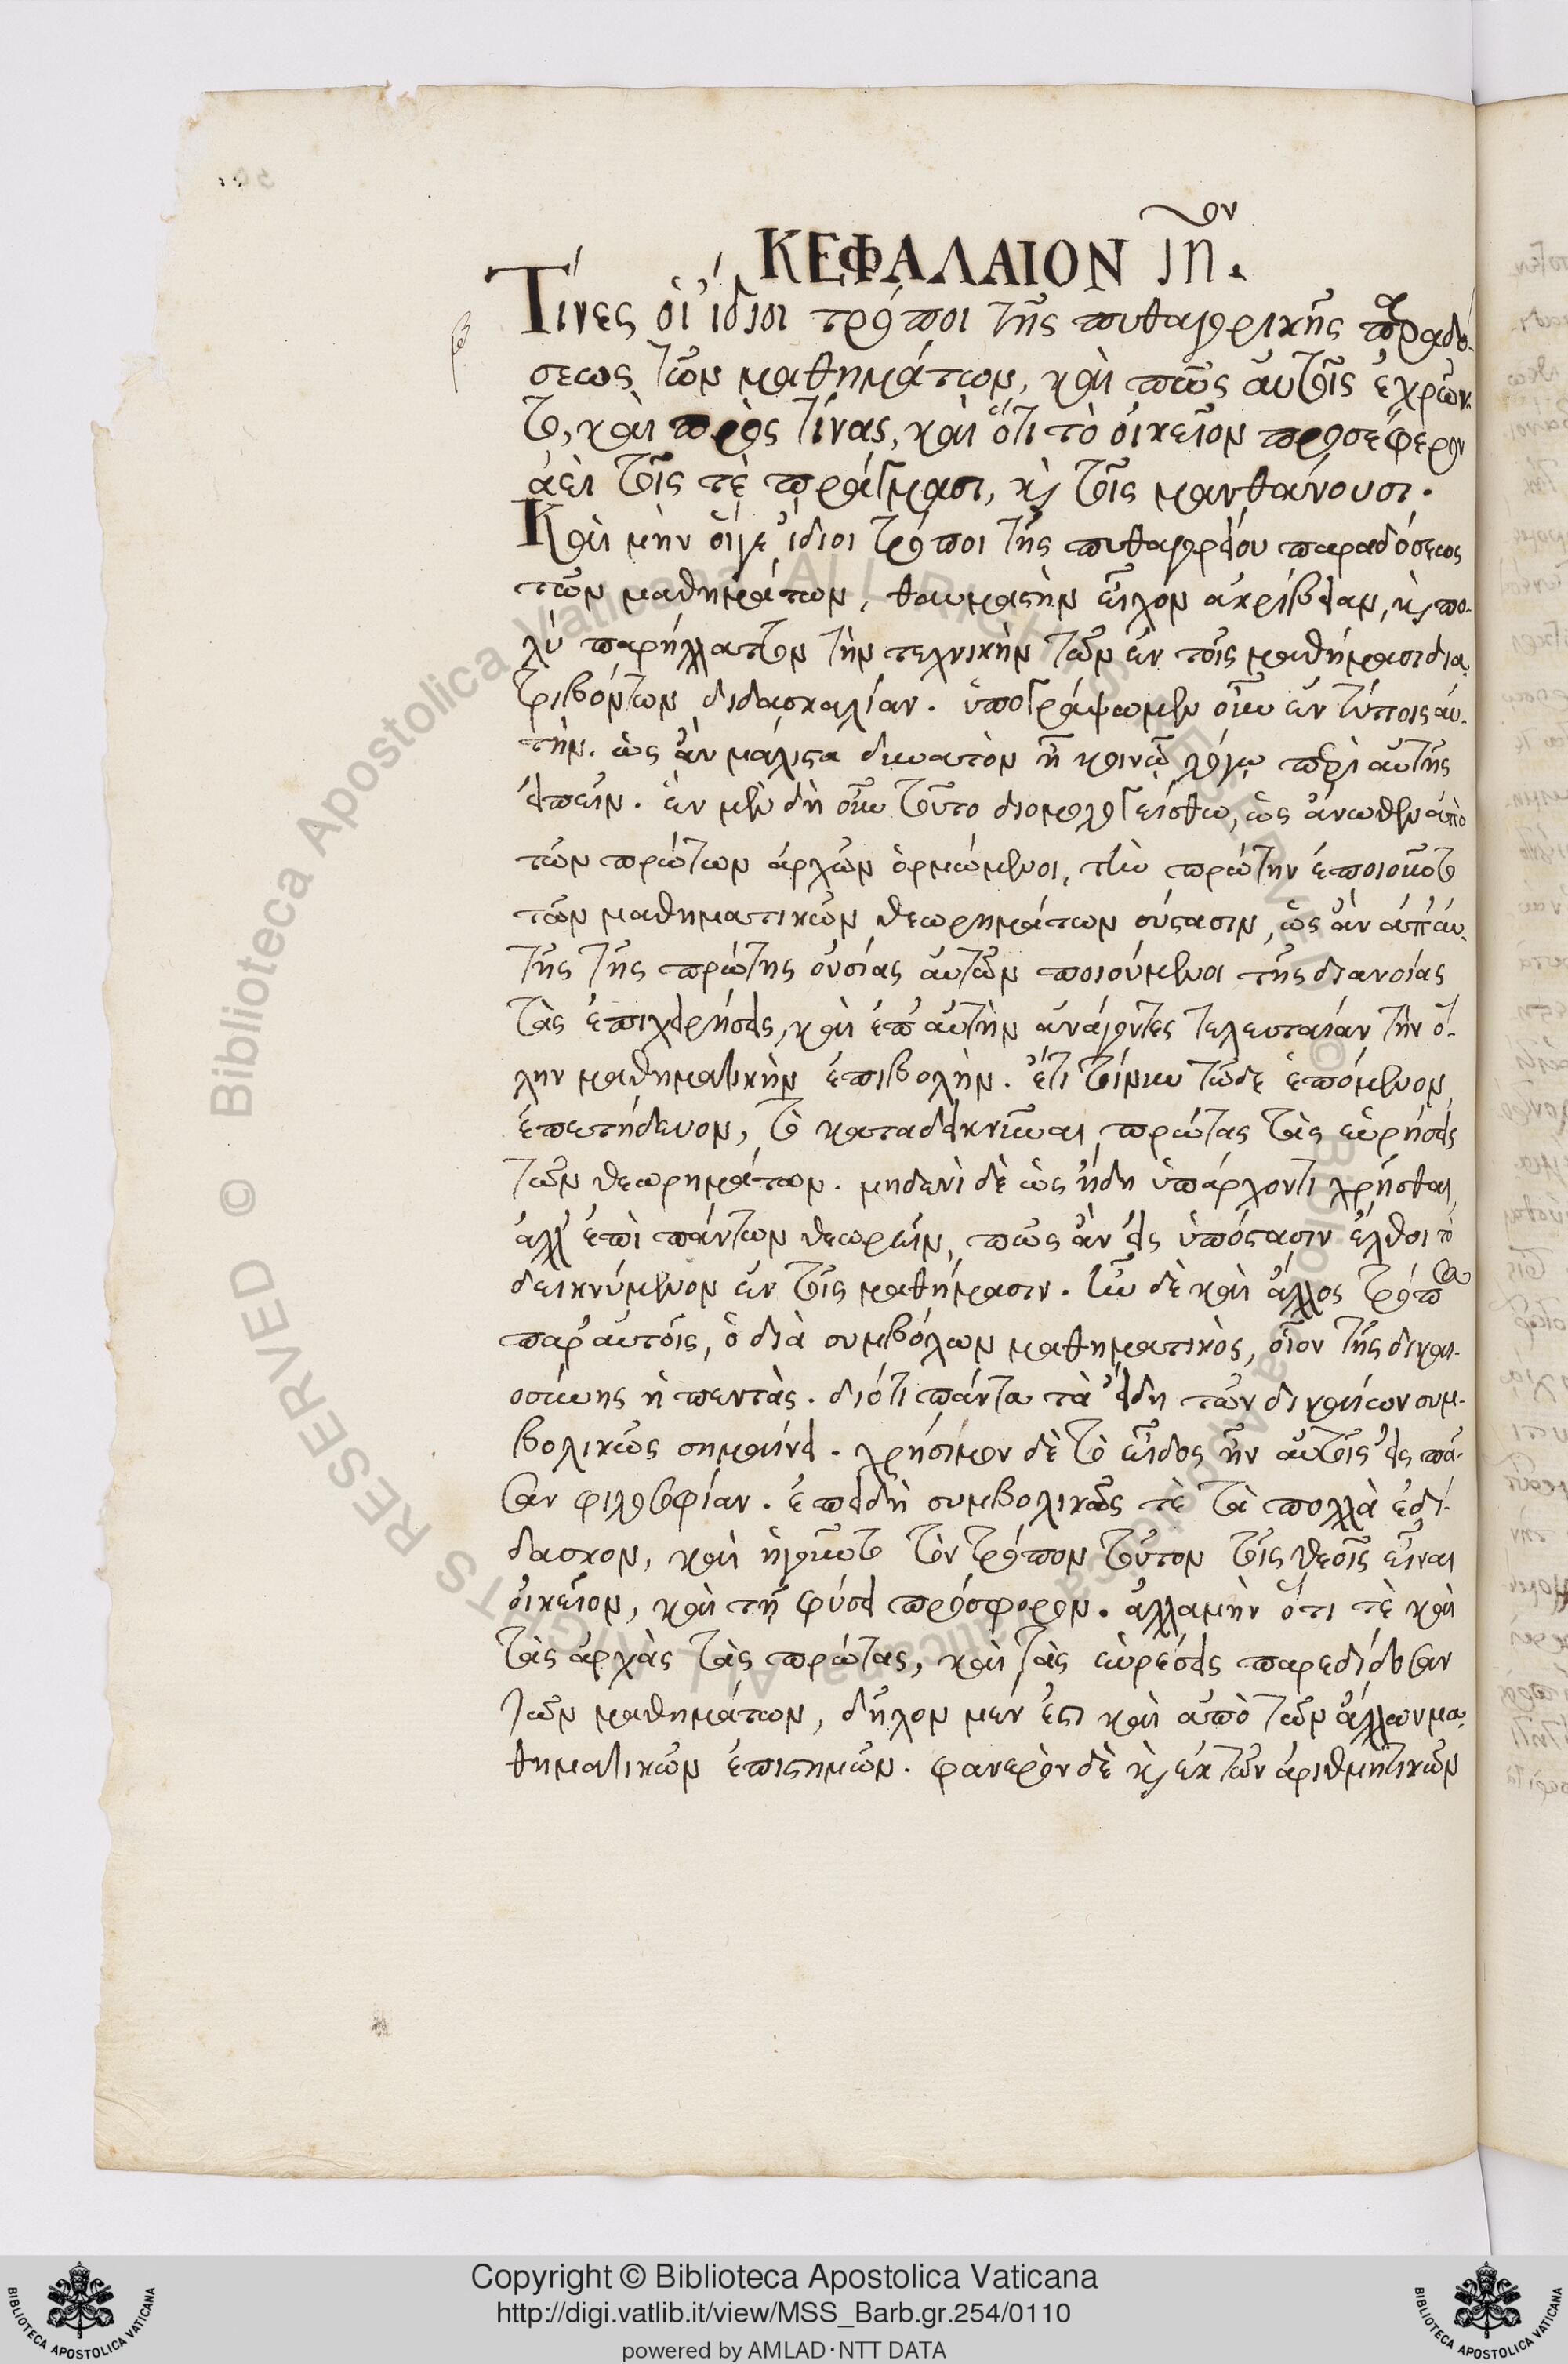 ΚΕΦΑΛΑΙΟΝ ιη ον.
Τίνες οἱ ἴδιοι τρόποι τῆς πυθαγορικῆς παραδό-
σεως τῶν μαθημάτων, καὶ πῶς αὐτοῖς ἐχρῶν-
το, καὶ πρὸς τίνας, καὶ ὅτι τὸ οἰκεῖον προσέφερον
ἀεὶ τοῖς τὲ πράγμασι, κỳ τοῖς μανθάνουσι.
Καὶ μὴν οἵγε ἴδιοι τρόποι τῆς πυθαγορείου παραδόσεως
τῶν μαθημάτων, θαυμαστὴν εἶχον ἀκρίβειαν, κỳ πο-
λὺ παρήλλαττον τὴν τεχνικὴν τῶν ἐν τοῖς μαθήμασι δια-
τριβόντων διδασκαλίαν. ὑπογράψωμεν οὖν ἐν τύποις αὐ-
τὴν. ὡς ἂν μάλιστα δυνατὸν ἦ κοινῶ λόγω περὶ αὐτῆς
εἰπεῖν. ἓν μὲν δὴ οὖν τοῦτο διομολογείσθω, ὡς ἄνωθεν ἀπὸ
τῶν πρώτων ἀρχῶν ὁρμώμενοι, τὴν πρώτην ἐποιοῦντο
τῶν μαθηματικῶν θεωρημάτων σύστασιν, ὡς ἂν ἀπ' αὐ-
τῆς τῆς πρώτης οὐσίας αὐτῶν ποιούμενοι τῆς διανοίας
τὰς ἐπιχειρήσεις, καὶ ἐπ' αὐτὴν ἀνάγοντες τελευταίαν τὴν ὅ-
λην μαθηματικὴν ἐπιβολὴν. ἔτι τοίνυν τῶδε ἑπόμενον
ἐπετήδευον, τὸ καταδεικνύναι πρώτας τὰς εὑρήσεις
τῶν θεωρημάτων. μηδενὶ δὲ ὡς ἤδη ὑπάρχοντι χρῆσθαι,
ἀλλ' ἐπὶ πάντων θεωρεῖν, πῶς ἂν εἰς ὑπόστασιν ἔλθοι τὸ
δεικνύμενον ἐν τοῖς μαθήμασιν. ἦν δὲ καὶ ἄλλος τρόπος
παρ' αὐτοῖς, ὁ διὰ συμβόλων μαθηματικὸς, οἷον τῆς δικαι-
οσύνης ἡ πεντὰς. διότι πάντα τὰ εἴδη τῶν δικαίων συμ-
βολικῶς σημαίνει. χρήσιμον δὲ τὸ εἶδος ἦν αὐτοῖς εἰς πᾶ-
σαν φιλοσοφίαν. ἐπειδὴ συμβολικῶς τὲ τὰ πολλὰ ἐδί-
δασκον, καὶ ἡγοῦντο τὸν τρόπον τοῦτον τοῖς θεοῖς εἶναι
οἰκεῖον, καὶ τῆ φύσει πρόσφορον. ἀλλαμὴν ὅτι τὲ καὶ
τὰς ἀρχὰς τὰς πρώτας, καὶ τὰς εὑρέσεις παρεδίδοσαν
τῶν μαθημάτων, δῆλον μέν ἐστι καὶ ἀπὸ τῶν ἄλλων μα-
θηματικῶν ἐπιστημῶν. φανερὸν δὲ κỳ ἐκ τῶν ἀριθμητικῶν
Copyright © Biblioteca Apostolica Vaticana
http://digi.vatlib.it/view/MSS_Barb.gr.254/0110
powered by AMLAD·NTT DATA
BIBLIOTECA APOSTOLICA VATICANA
BIBLIOTECA APOSTOLICA VATICANA